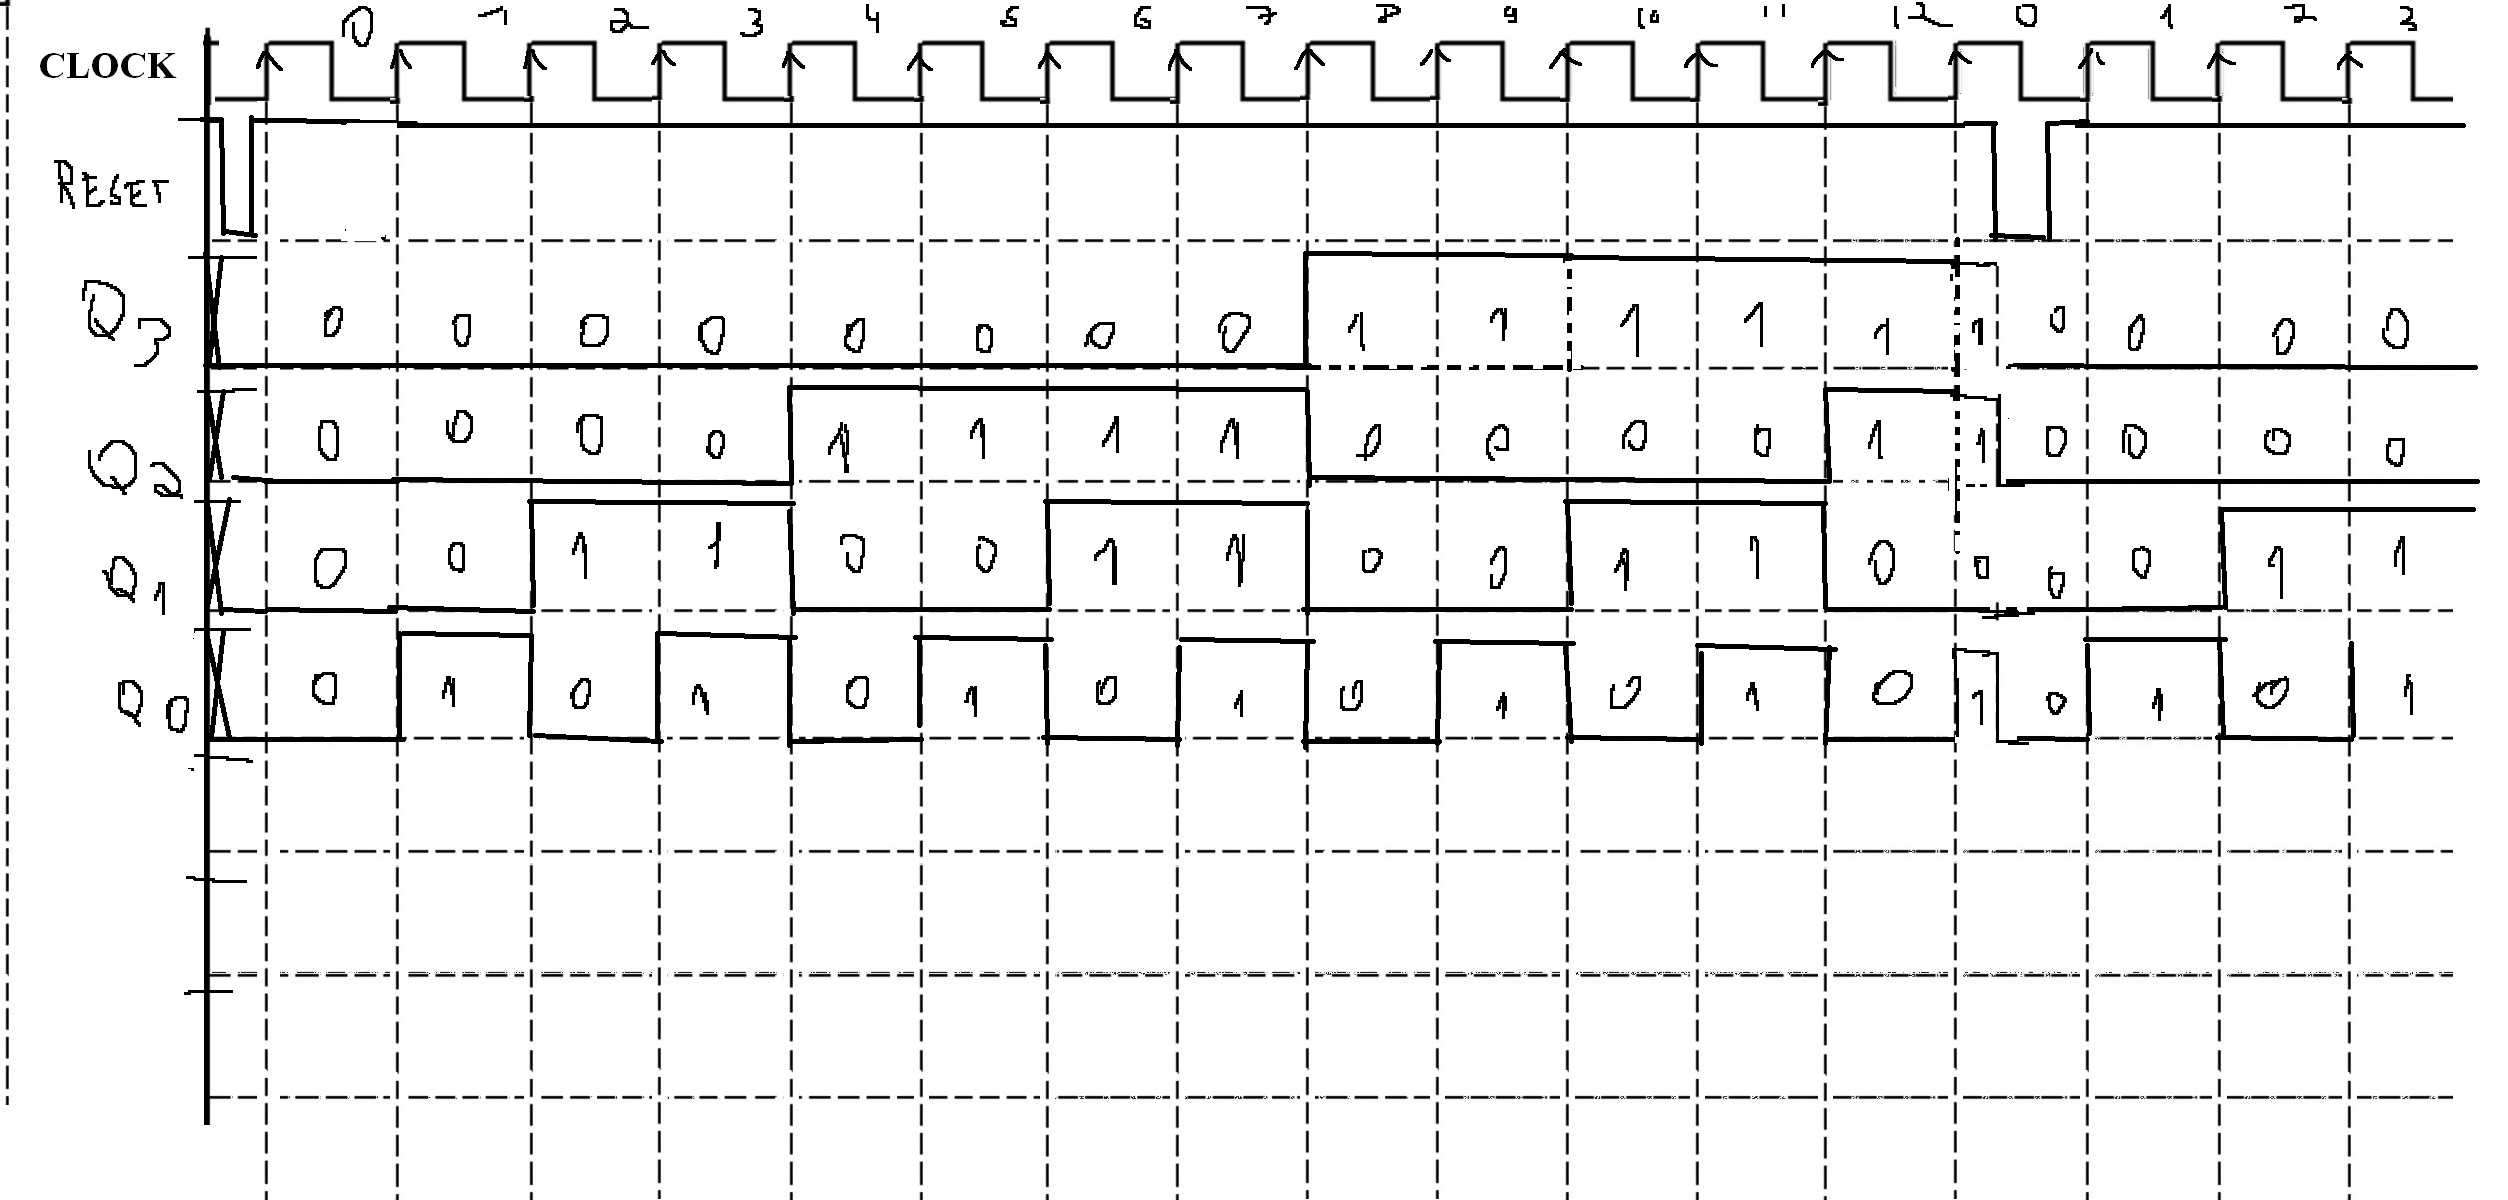 0 1 2 3 4 5 6 7 8 9 10 11 12 0 1 2 3
CLOCK
RESET
Q3 0 0 0 0 0 0 0 0 1 1 1 1 1 1 0 0 0 0
Q2 0 0 0 0 1 1 1 1 0 0 0 0 1 1 0 0 0 0
Q1 0 0 1 1 0 0 1 1 0 0 1 1 0 0 0 0 1 1
Q0 0 1 0 1 0 1 0 1 0 1 0 1 0 1 0 1 0 1